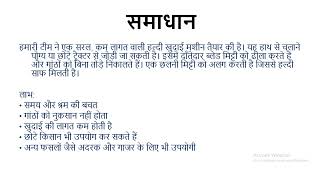 समाधान
हमारी टीम ने एक सरल, कम लागत वाली हल्दी खुदाई मशीन तैयार की है। यह हाथ से चलाने
योग्य या छोटे ट्रैक्टर से जोड़ी जा सकती है। इसमें दांतेदार ब्लेड मिट्टी को ढीला करते हैं
और गांठों को बिना तोड़े निकालते हैं। एक छलनी मिट्टी को अलग करती है जिससे हल्दी
साफ मिलती है।
लाभ:
• समय और श्रम की बचत
• गांठों को नुकसान नहीं होता
• खुदाई की लागत कम होती है
• छोटे किसान भी उपयोग कर सकते हैं
• अन्य फसलों जैसे अदरक और गाजर के लिए भी उपयोगी